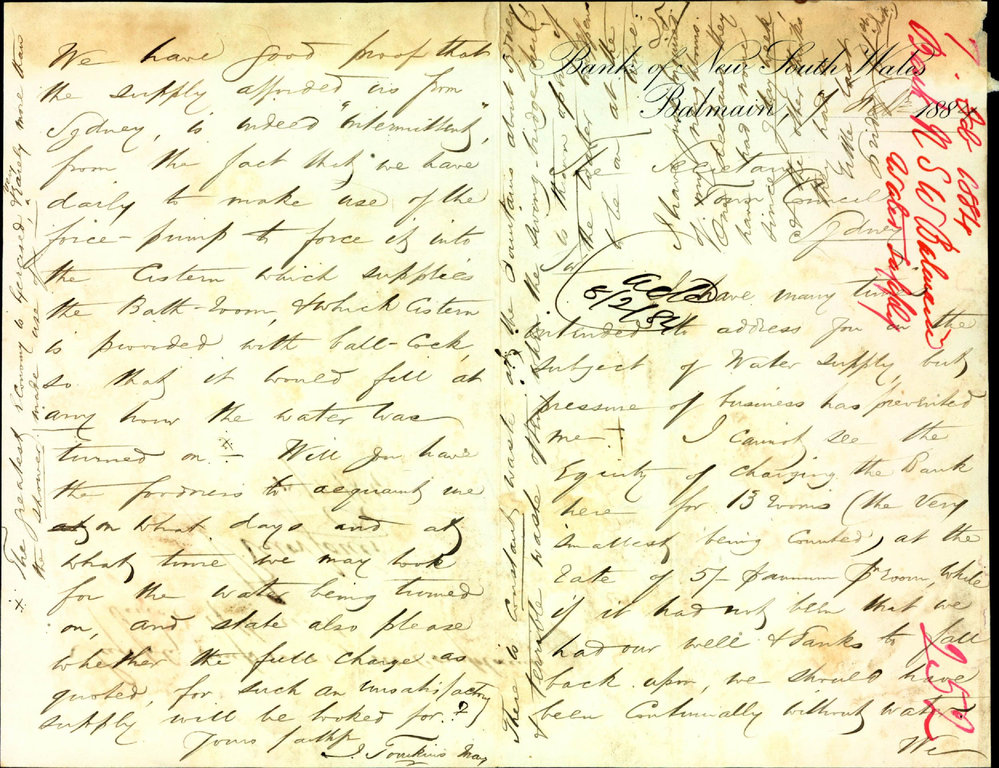 Bank of New South Wales
Balmain 7 Feb 1884
Secretary
Town Council
Sydney
I have many times
intended to address you on the
subject of Water supply, but
pressure of business has prevented
me. + I cannot see the
Equity of charging the Bank
here for 13 rooms (the very
smallest being counted) at the
rate of 5/- p annum p room, while
if it had not been that we
had our well & Tanks to fall
back upon, we should have
been Continually without water.
We
We have good proof that
the supply afforded us from
Sydney, is indeed "intermittent,"
from the fact that we have
daily to make use of the
force-pump to force it into
the Cistern which supplies
the Bath-room, & which Cistern
is provided with ball-Cock,
so that it would fill at
any hour the water was
turned on. Will you have
the goodness to acquaint me
on what days and at
what time we may look
for the water being turned
on, and state also please
whether the full charge as
quoted, for such an unsatisfactory
supply will be looked for?
Yours faithf
J. Tomkins Man
The greatest economy is exercised & rarely more than
the shower made use of
There is constant waste at the fountains about Sydney
& terrible waste
swing-bridge
8/2/84
7 Feb 1884
Bank N S W Balmain
Water Supply
252